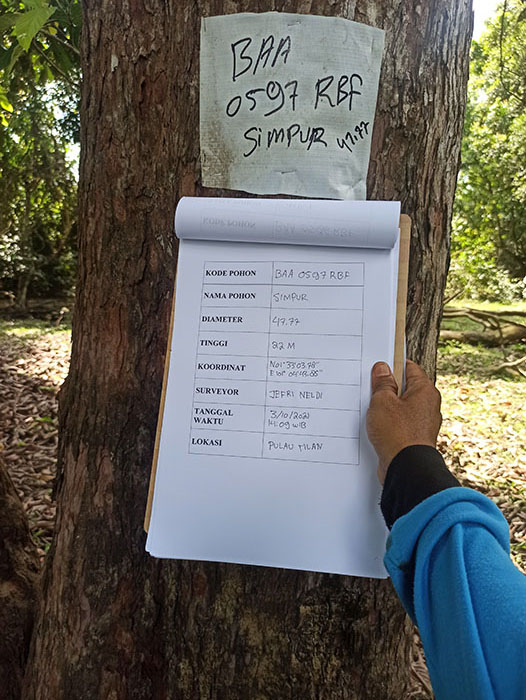 BAA
0597 RBF
SIMPUR 47.77
KODE POHON BAA 0597 RBF
NAMA POHON SIMPUR
DIAMETER 47.77
TINGGI 32 M
KOORDINAT N01°
E101°
SURVEYOR JEFRI NELDI
TANGGAL 3/10/2021
WAKTU 14.09 WIB
LOKASI PULAU TILAN